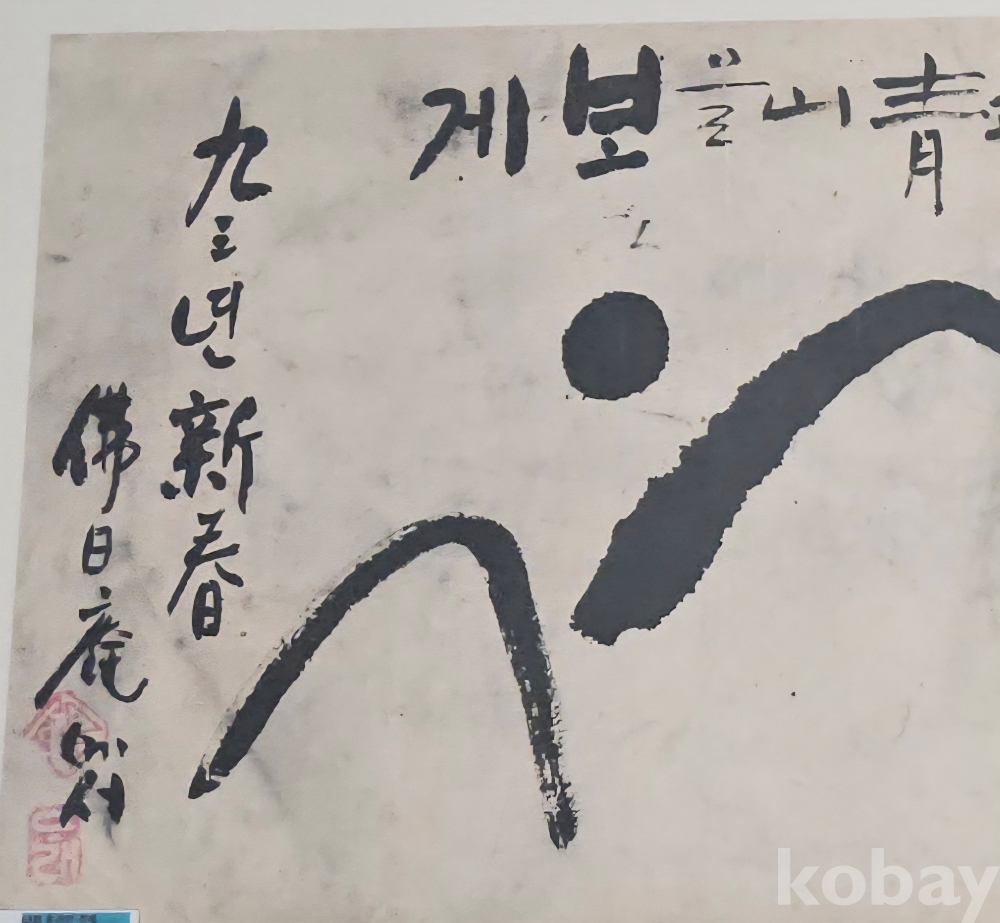 青山을보게
九三년新春
佛日庵에서
kobay